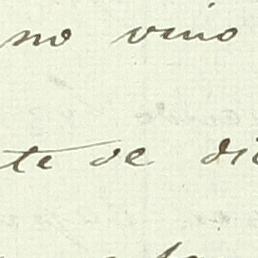 no vino
te de di